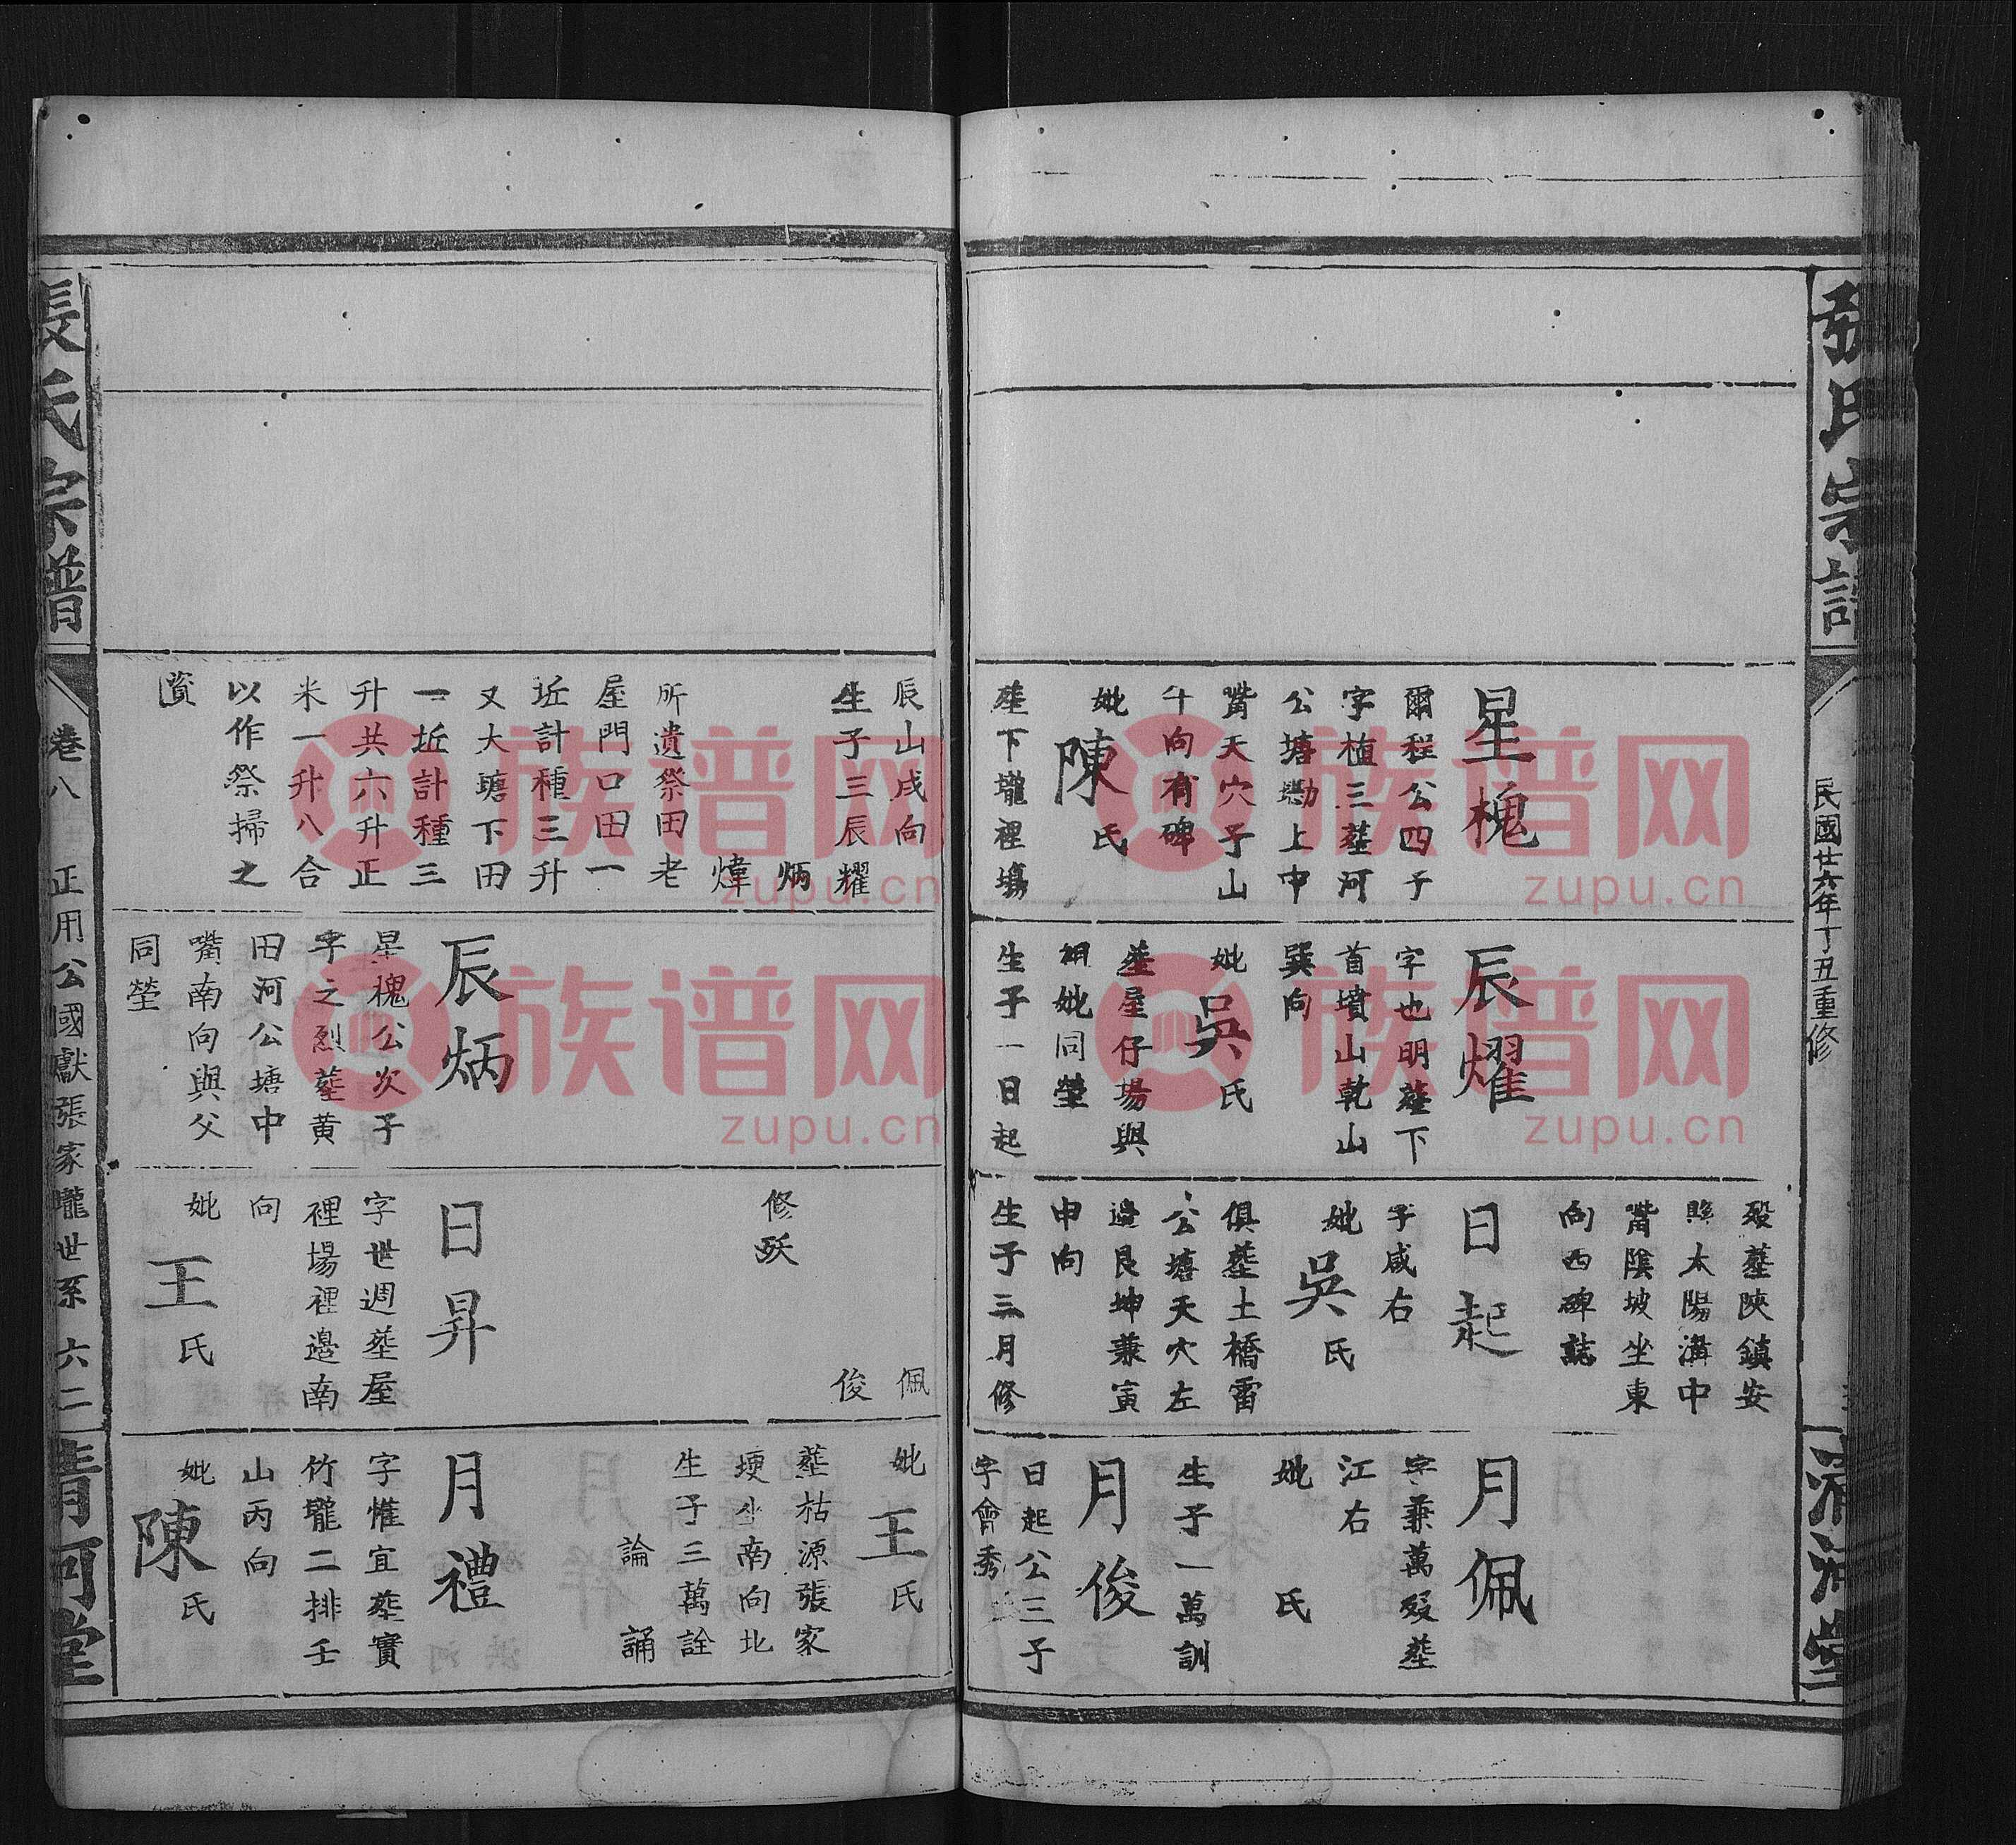 張氏宗譜
民國廿六年丁丑重修
清河堂
星槐
爾程公四子
字植三塟河
公塘塝上中
嘴天穴子山
午向有碑
妣陳氏
塟下壠裡塲
辰山戌向
生子三辰耀
炳
煒
所遺祭田老
屋門口田一
坵計種三升
又大塘下田
一坵計種三
升共六升正
米一升八合
以作祭掃之
資
辰耀
字也明塟下
首墳山乾山
巽向
妣吳氏
塟屋仔塲與
祖妣同塋
生子一日起
辰炳
星槐公次子
字之烈塟黃
田河公塘中
嘴南向與父
同塋
歿塟陝鎮安
縣太陽溝中
嘴陰坡坐東
向西碑誌
日起
字咸右
妣吳氏
俱塟土橋雷
公塘天穴左
邊艮坤兼寅
申向
生子三月修
佩
俊
修歿
日昇
字世週塟屋
裡塲裡邊南
向
妣王氏
月佩
字兼萬歿塟
江右
妣 氏
生子一萬訓
月俊
日起公三子
字會秀
妣王氏
塟枯源張家
埂坐南向北
生子三萬詮
論
誦
月禮
字惟宜塟實
竹壠二排壬
山丙向
妣陳氏
張氏宗譜
卷八
正用公國獻張家壠世系
六二
清河堂
族谱网
zupu.cn
族谱网
zupu.cn
族谱网
zupu.cn
族谱网
zupu.cn